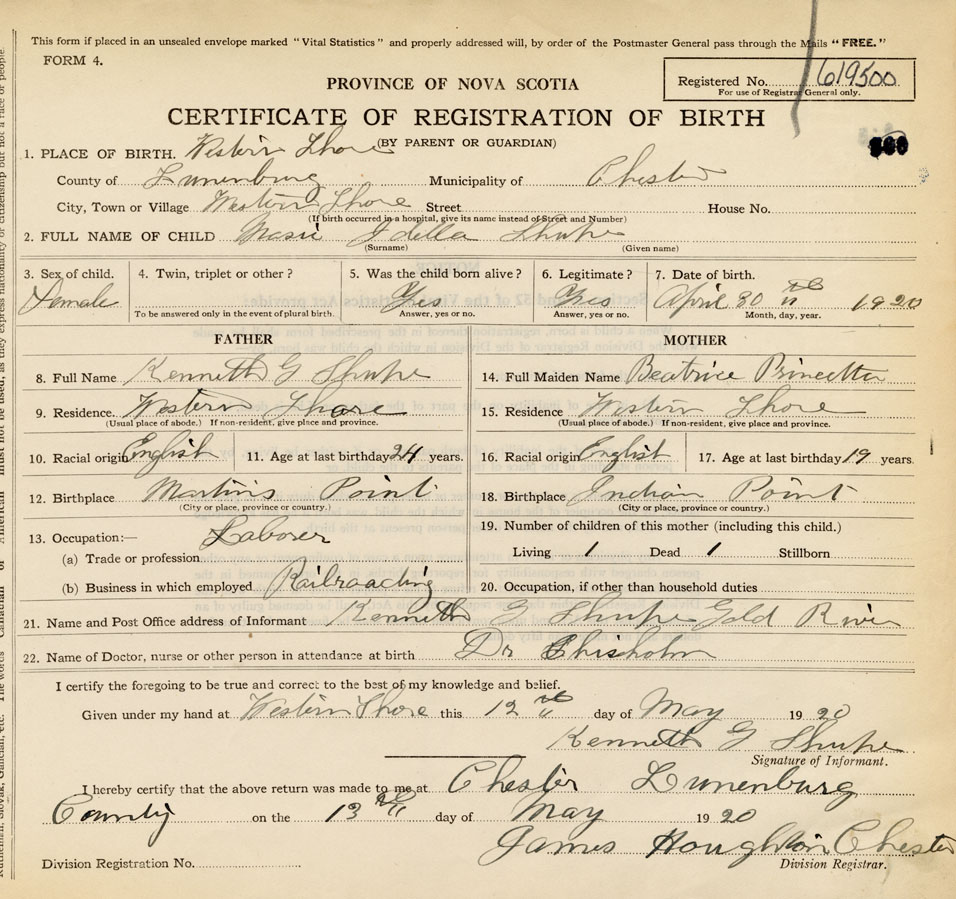 This form if placed in an unsealed envelope marked "Vital Statistics" and properly addressed will, by order of the Postmaster General pass through the Mails "FREE."
FORM 4.
Registered No. 619500
For use of Registrar General only.
PROVINCE OF NOVA SCOTIA
CERTIFICATE OF REGISTRATION OF BIRTH
(BY PARENT OR GUARDIAN)
1. PLACE OF BIRTH. Western Shore
County of Lunenburg Municipality of Chester
City, Town or Village Western Shore Street House No.
(If birth occurred in a hospital, give its name instead of Street and Number)
2. FULL NAME OF CHILD Idella Shupe
(Surname) (Given name)
3. Sex of child. 4. Twin, triplet or other? 5. Was the child born alive? 6. Legitimate? 7. Date of birth.
Female Yes Yes April 30 th 1920
To be answered only in the event of plural birth. Answer, yes or no. Answer, yes or no. Month, day, year.
FATHER MOTHER
8. Full Name Kenneth G Shupe 14. Full Maiden Name Beatrice
9. Residence. Western Shore 15. Residence Western Shore
(Usual place of abode.) If non-resident, give place and province. (Usual place of abode.) If non-resident, give place and province.
10. Racial origin English 11. Age at last birthday 24 years. 16. Racial origin English 17. Age at last birthday 19 years.
12. Birthplace Martins Point 18. Birthplace Indian Point
(City or place, province or country.) (City or place, province or country.)
13. Occupation:— Laborer 19. Number of children of this mother (including this child.)
(a) Trade or profession Living 1 Dead 1 Stillborn
(b) Business in which employed Railroading 20. Occupation, if other than household duties
21. Name and Post Office address of Informant Kenneth G Shupe Gold River
22. Name of Doctor, nurse or other person in attendance at birth Dr Chisholm
I certify the foregoing to be true and correct to the best of my knowledge and belief.
Given under my hand at Western Shore this 12 th day of May 1920
Kenneth G Shupe
Signature of Informant.
I hereby certify that the above return was made to me at Chester Lunenburg
County on the 13 th day of May 1920
James Houghton Chester
Division Registration No. Division Registrar.